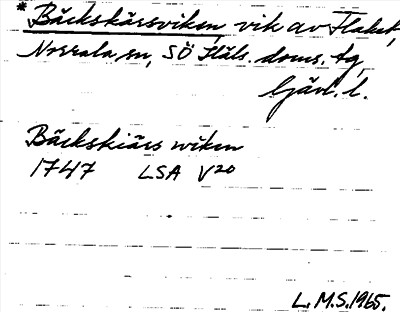 * Bäckskärsviken, vik av Flaket,
Norrala sn, SÖ Häls. doms. tg,
Gävl. l.
Bäckskiärs wiken
1747 LSA V20
L.M.S. 1965.